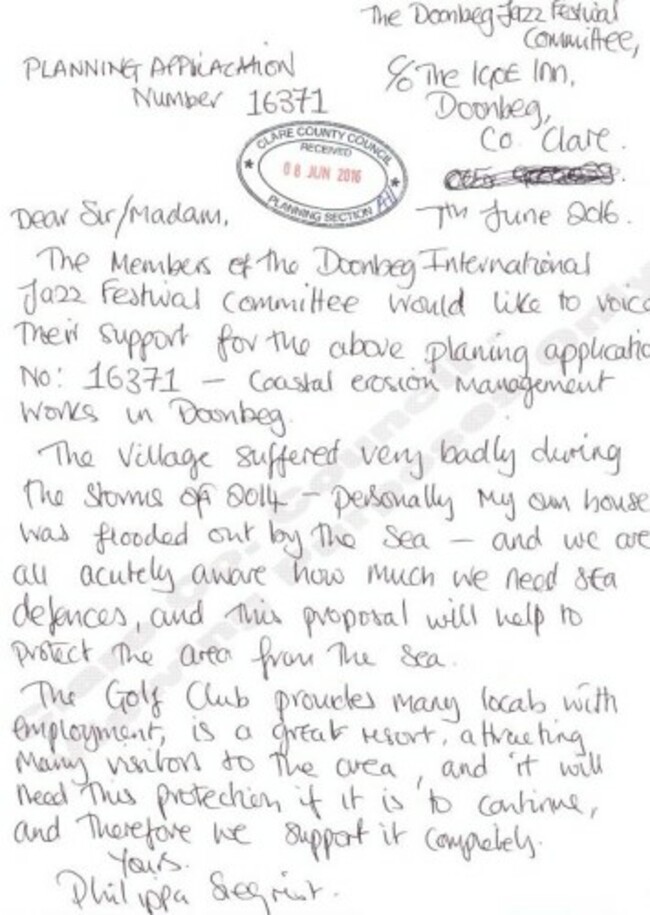 The Doonbeg Jazz Festival
Committee,
PLANNING APPLICATION
Number 16371
C/o The Igoe Inn,
Doonbeg,
Co. Clare.
CLARE COUNTY COUNCIL
RECEIVED
08 JUN 2016
PLANNING SECTION
7th June 2016.
Dear Sir/Madam,
The Members of the Doonbeg International
Jazz Festival Committee would like to voice
Their support for the above planing applicatio
No: 16371 – Coastal erosion Management
Works in Doonbeg.
The Village suffered very badly during
the storms of 2014 – personally my own house
was flooded out by the sea – and we are
all acutely aware how much we need sea
defences, and this proposal will help to
protect the area from the sea.
The Golf Club provides many locals with
employment, is a great resort, attracting
Many visitors to the area, and it will
need this protection if it is to continue,
and therefore we support it completely.
Yours.
Philippa
Clare Co. Council
Viewing Purposes Only